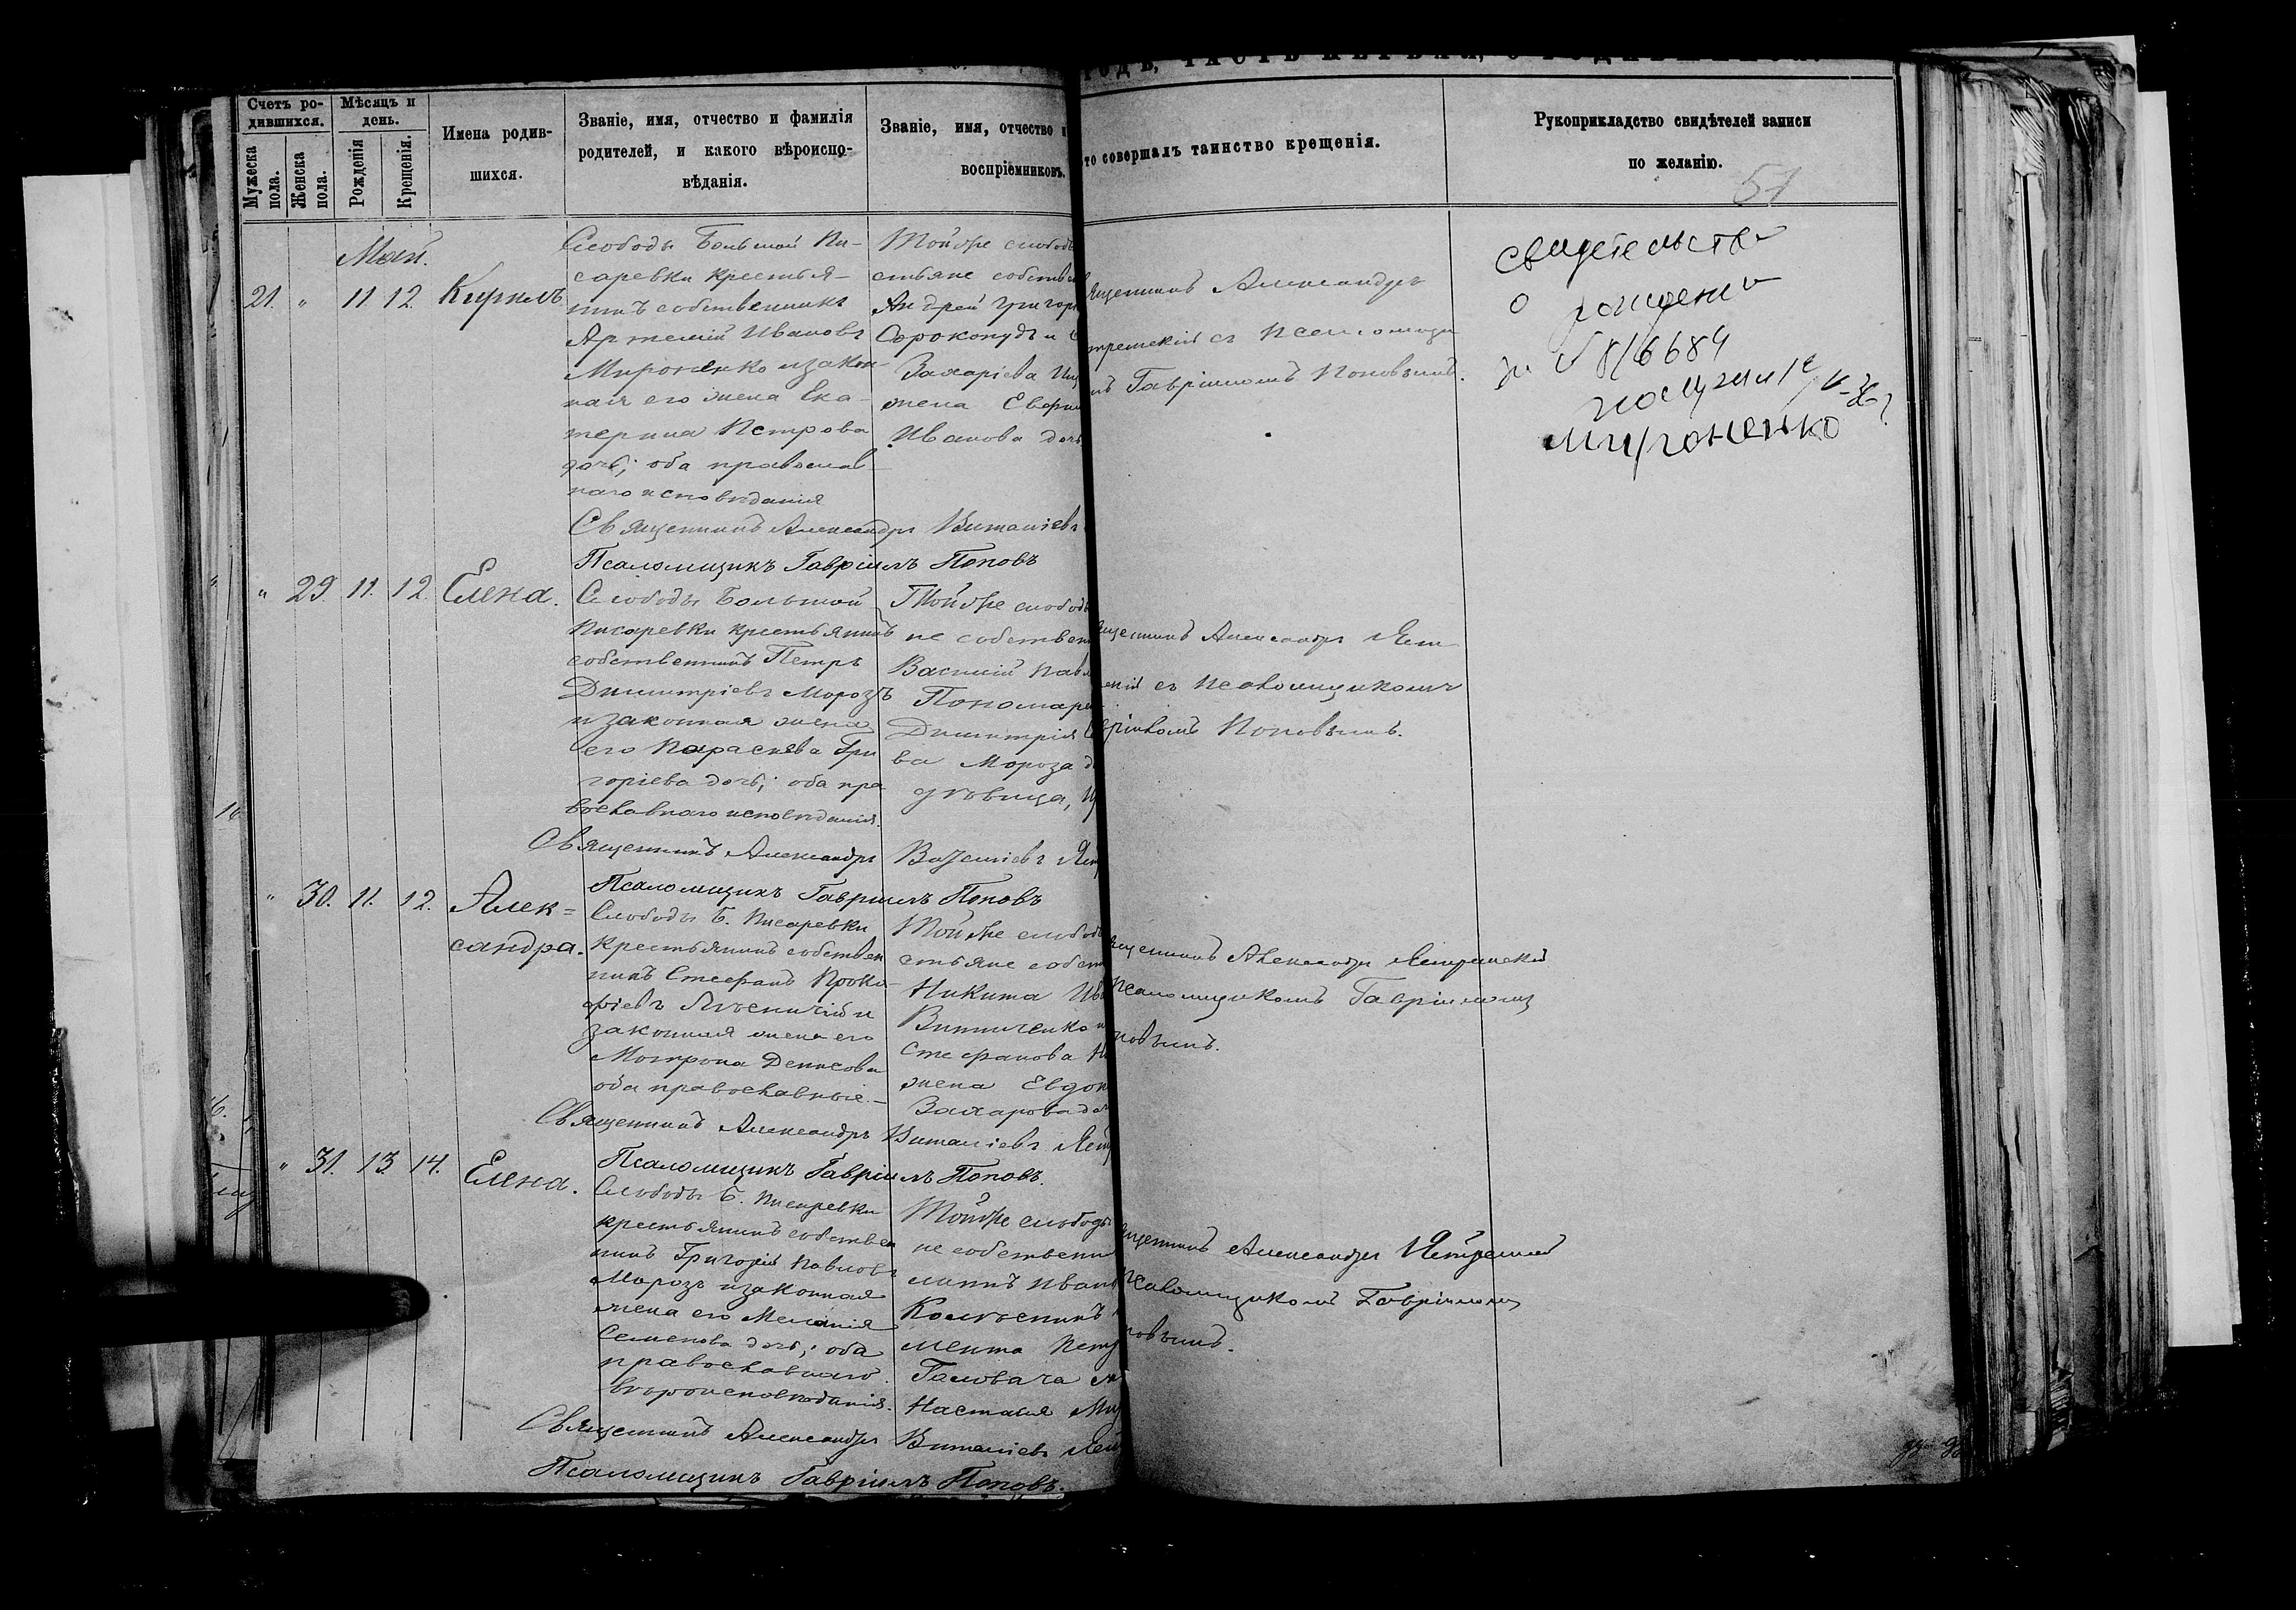 Счетъ ро-
дившихся.
Мѣсяцъ и
день.
Мужеска
пола.
Женска
пола.
Рожденія
Крещенія.
Имена родив-
шихся.
Званіе, имя, отчество и фамилія
родителей, и какого вѣроиспо-
вѣданія.
Званіе, имя, отчество
воспріемниковъ.
то совершалъ таинство крещенія.
Рукоприкладство свидѣтелей записи
по желанію.
51
Май.
21. " 11 12. Кирилъ
Слободы Большой Пи-
саревки крестья-
нинъ собственникъ
Артемій Ивановъ
Мироненко и закон-
ная его жена Ека-
терина Петрова
дочь; оба православ-
наго исповѣданія
Тойже слободы
стьяне собстве
Андрей Григор
Сорокопудъ и
Захаріева
жена
Иванова дочь
Священникъ Александръ Виталіевъ
Псаломщикъ Гавріилъ Поповъ
ященникъ Александръ
тремскій съ Псаломщи
мъ Гавріиломъ Поповымъ.
свидетельство
о рождении
за № 8/6684
получил
Мироненко
" 29. 11. 12. Елена.
Слободы Большой
Писаревки крестьянинъ
собственникъ Петръ
Димитріевъ Морозъ
и законная жена
его Параскева Гри
горіева дочь; оба пра
вославнаго исповѣданія.
Тойже слободы
не собствен
Василій Павл
Пономаре
Димитрія
ва Мороза д
дѣвица,
Священникъ Александръ Виталіевъ Яст
Псаломщикъ Гавріилъ Поповъ
ященникъ Александръ Яст
скій съ Псаломщикомъ
вріиломъ Поповымъ.
" 30. 11. 12. Алек=
сандра.
Слободы Б. Писаревки
крестьянинъ собствен
никъ Стефанъ Проко
фіевъ
законная жена его
Матрона Денисова
оба православные.
Тойже слободы
стьяне собст
Никита Ив
Винниченко и
Стефанова
жена Евдок
Захарова доч
Священникъ Александръ Виталіевъ Яст
Псаломщикъ Гавріилъ Поповъ.
ященникъ Александръ Ястремскій
Псаломщикомъ Гавріиломъ
повымъ.
" 31. 13. 14. Елена.
Слободы Б. Писаревки
крестьянинъ собствен
никъ Григорій Павловъ
Морозъ и законная
жена его Меланія
Семенова дочь; оба
православнаго
вѣроисповѣданія.
Тойже слободы
не собственн
Иван
Колѣсникъ
мента Петр
Головача
Настасія
Священникъ Александръ Виталіевъ Яст
Псаломщикъ Гавріилъ Поповъ.
ященникъ Александръ Ястремскій
Псаломщикомъ Гавріиломъ
повымъ.